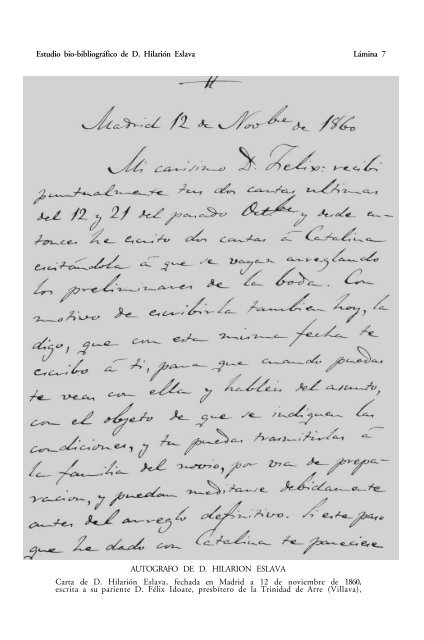 Estudio bio-bibliográfico de D. Hilarión Eslava Lámina 7
Madrid 12 de Novbe de 1860
Mi carisimo D. Felix: recibi
puntualmente tus dos cartas ultimas
del 12 y 21 del pasado Octbe y desde en-
tonces he escrito dos cartas á Catalina
escitándola á que se vayan arreglando
los preliminares de la boda. Con
motivo de escribirla tambien hoy, la
digo, que con esta misma fecha te
escribo á ti, para que cuando puedas
te veas con ella y hableis del asunto,
con el objeto de que se indiquen las
condiciones, y tu puedas trasmitirlas á
la familia del novio, por via de prepa-
racion, y puedan meditarse debidamente
antes del arreglo definitivo. Si este paso
que he dado con Catalina te pareciese
AUTOGRAFO DE D. HILARION ESLAVA
Carta de D. Hilarión Eslava, fechada en Madrid a 12 de noviembre de 1860,
escrita a su pariente D. Félix Idoate, presbítero de la Trinidad de Arre (Villava),